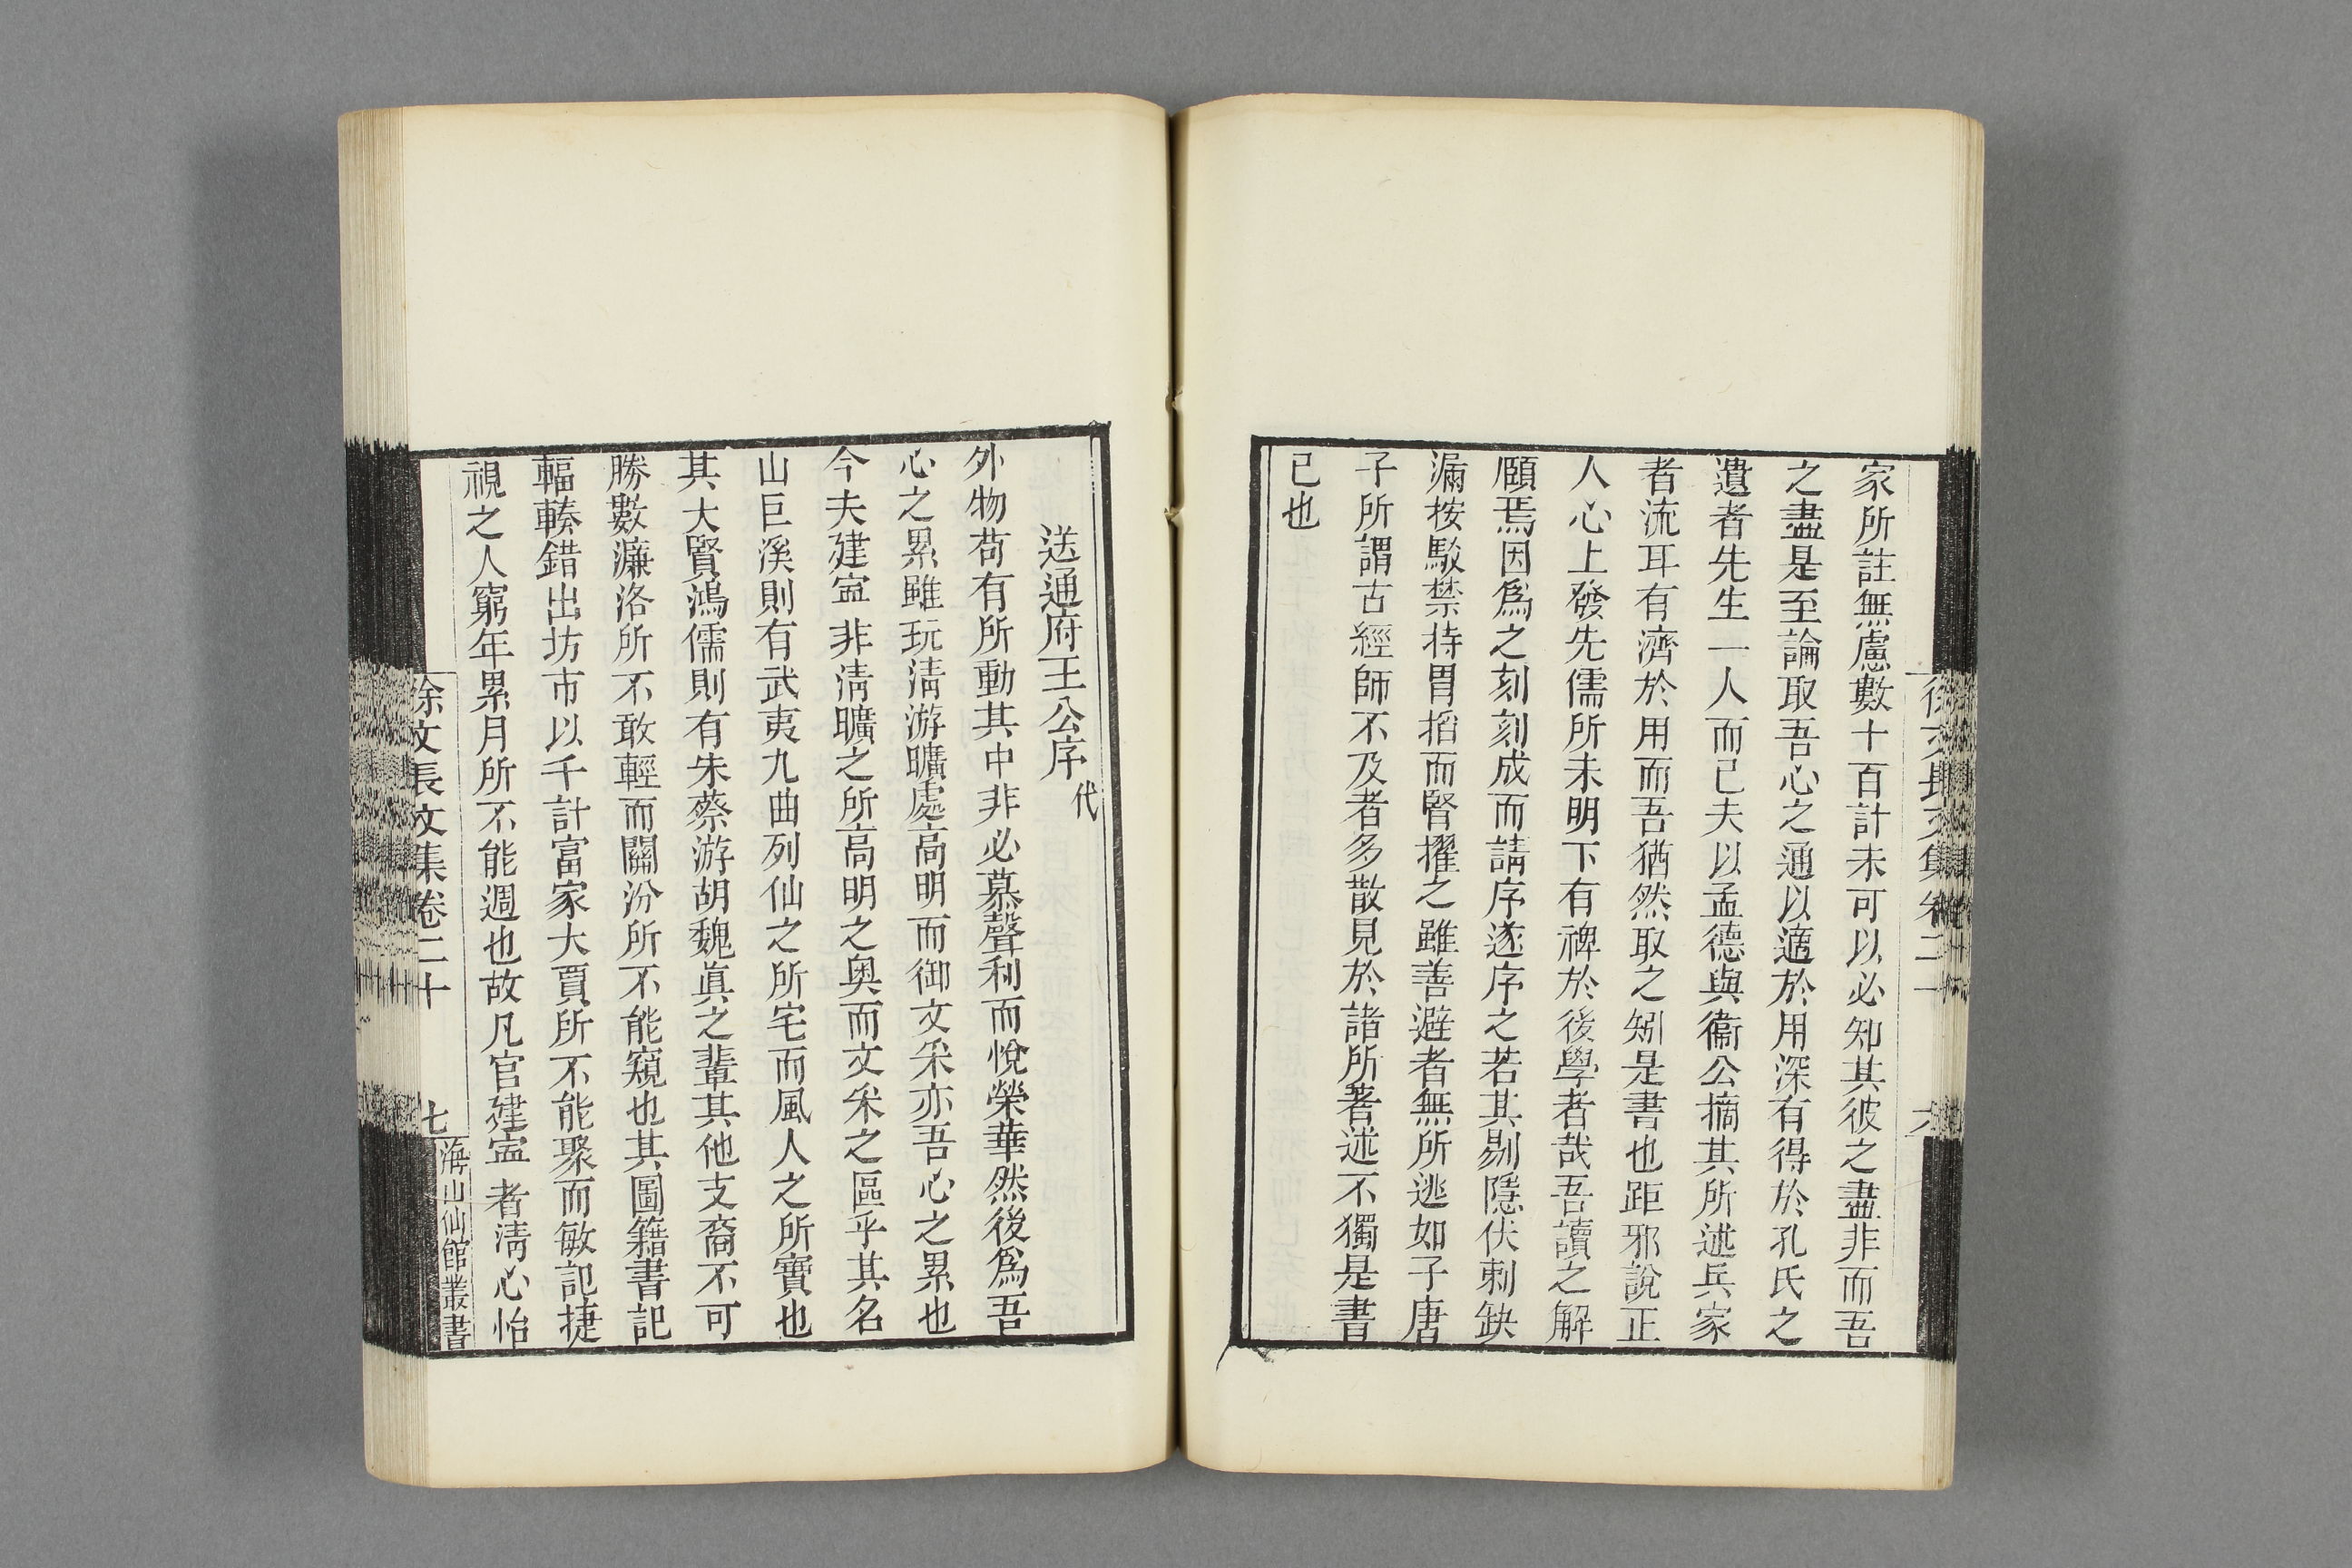 家所註無慮數十百計未可以必知其彼之盡非而吾
之盡是至論取吾心之通以適於用深有得於孔氏之
遺者先生一人而已夫以孟德與衞公摘其所述兵家
者流耳有濟於用而吾猶然取之矧是書也距邪說正
人心上發先儒所未明下有裨於後學者哉吾讀之解
頤焉因爲之刻刻成而請序遂序之若其剔隱伏刺缺
漏按駁禁持罥搯而腎擢之雖善避者無所逃如子唐
子所謂古經師不及者多散見於諸所著述不獨是書
已也
徐文長文集卷二十
六
送通府王公序 代
外物苟有所動其中非必慕聲利而悅榮華然後爲吾
心之累雖玩淸游曠處高明而御文采亦吾心之累也
今夫建寍非淸曠之所高明之奧而文采之區乎其名
山巨溪則有武夷九曲列仙之所宅而風人之所寶也
其大賢鴻儒則有朱蔡游胡魏眞之輩其他支裔不可
勝數濂洛所不敢輕而關汾所不能窺也其圖籍書記
輻輳錯出坊市以千計富家大賈所不能聚而敏記捷
視之人窮年累月所不能週也故凡官建寍者淸心怡
徐文長文集卷二十
七
海山仙館叢書